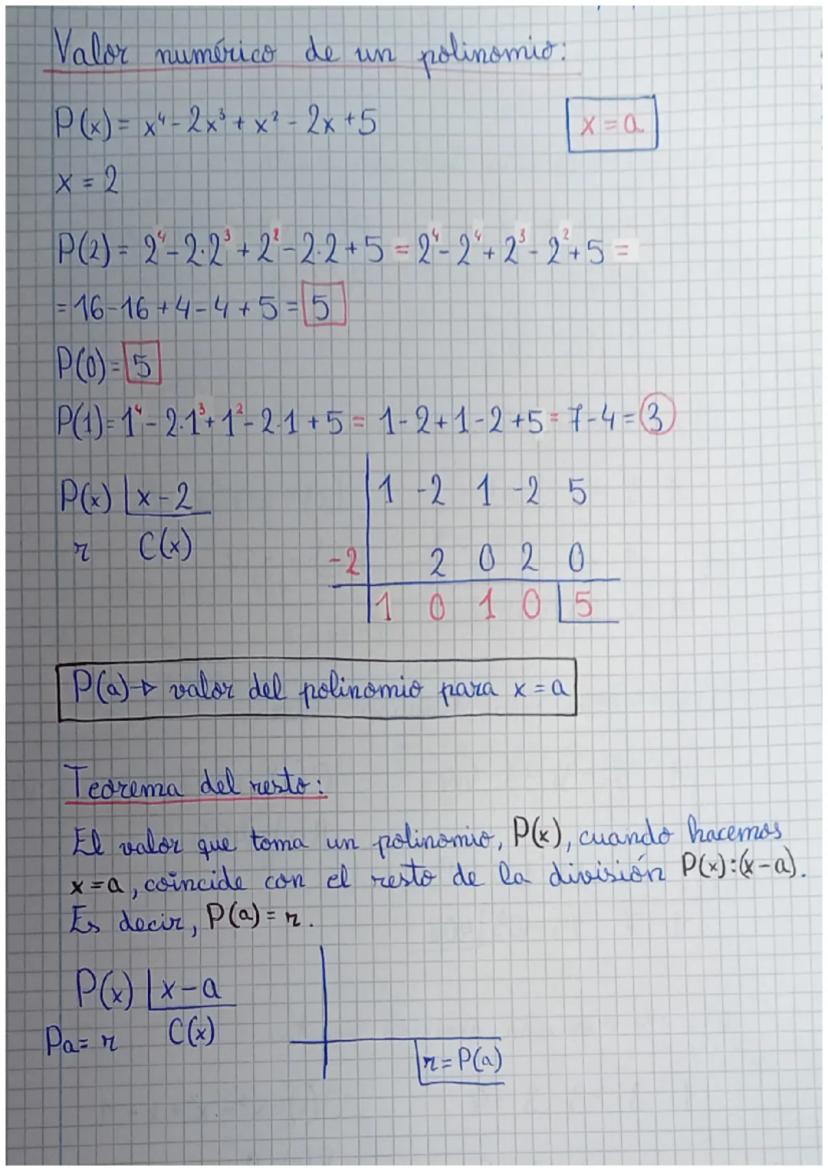 Valor numérico de un polinomio:
P(x) = x⁴ - 2x³ + x² - 2x + 5
x = a
x = 2
P(2) = 2⁴ - 2·2³ + 2² - 2·2 + 5 = 2⁴ - 2⁴ + 2³ - 2² + 5 =
= 16 - 16 + 4 - 4 + 5 = 5
P(0) = 5
P(1) = 1⁴ - 2·1³ + 1² - 2·1 + 5 = 1 - 2 + 1 - 2 + 5 = 7 - 4 = 3
P(x) | x - 2
r C(x)
1 -2 1 -2 5
-2 2 0 2 0
1 0 1 0 5
P(a) → valor del polinomio para x = a
Teorema del resto:
El valor que toma un polinomio, P(x), cuando hacemos
x = a, coincide con el resto de la división P(x):(x-a).
Es decir, P(a) = r.
P(x) | x - a
Pa = r C(x)
r = P(a)